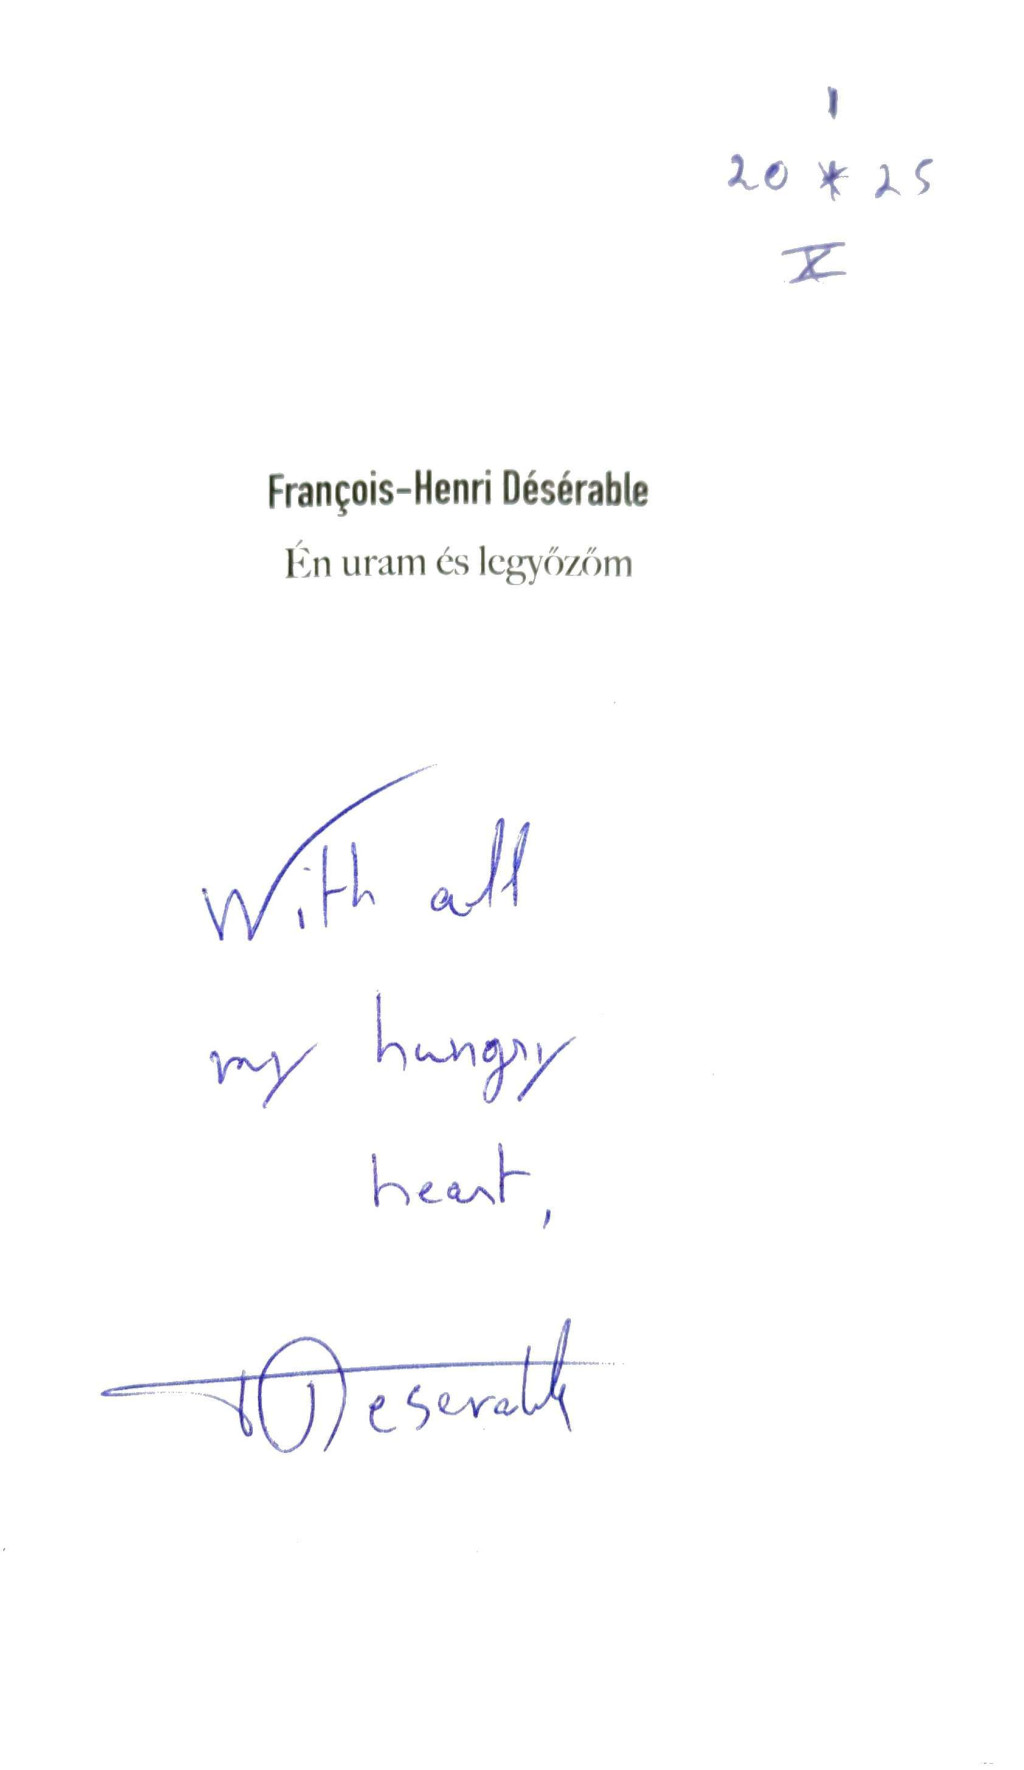 1
20 * 25
X
François-Henri Désérable
Én uram és legyőzőm
With all
my hungry
heart,
Deserable